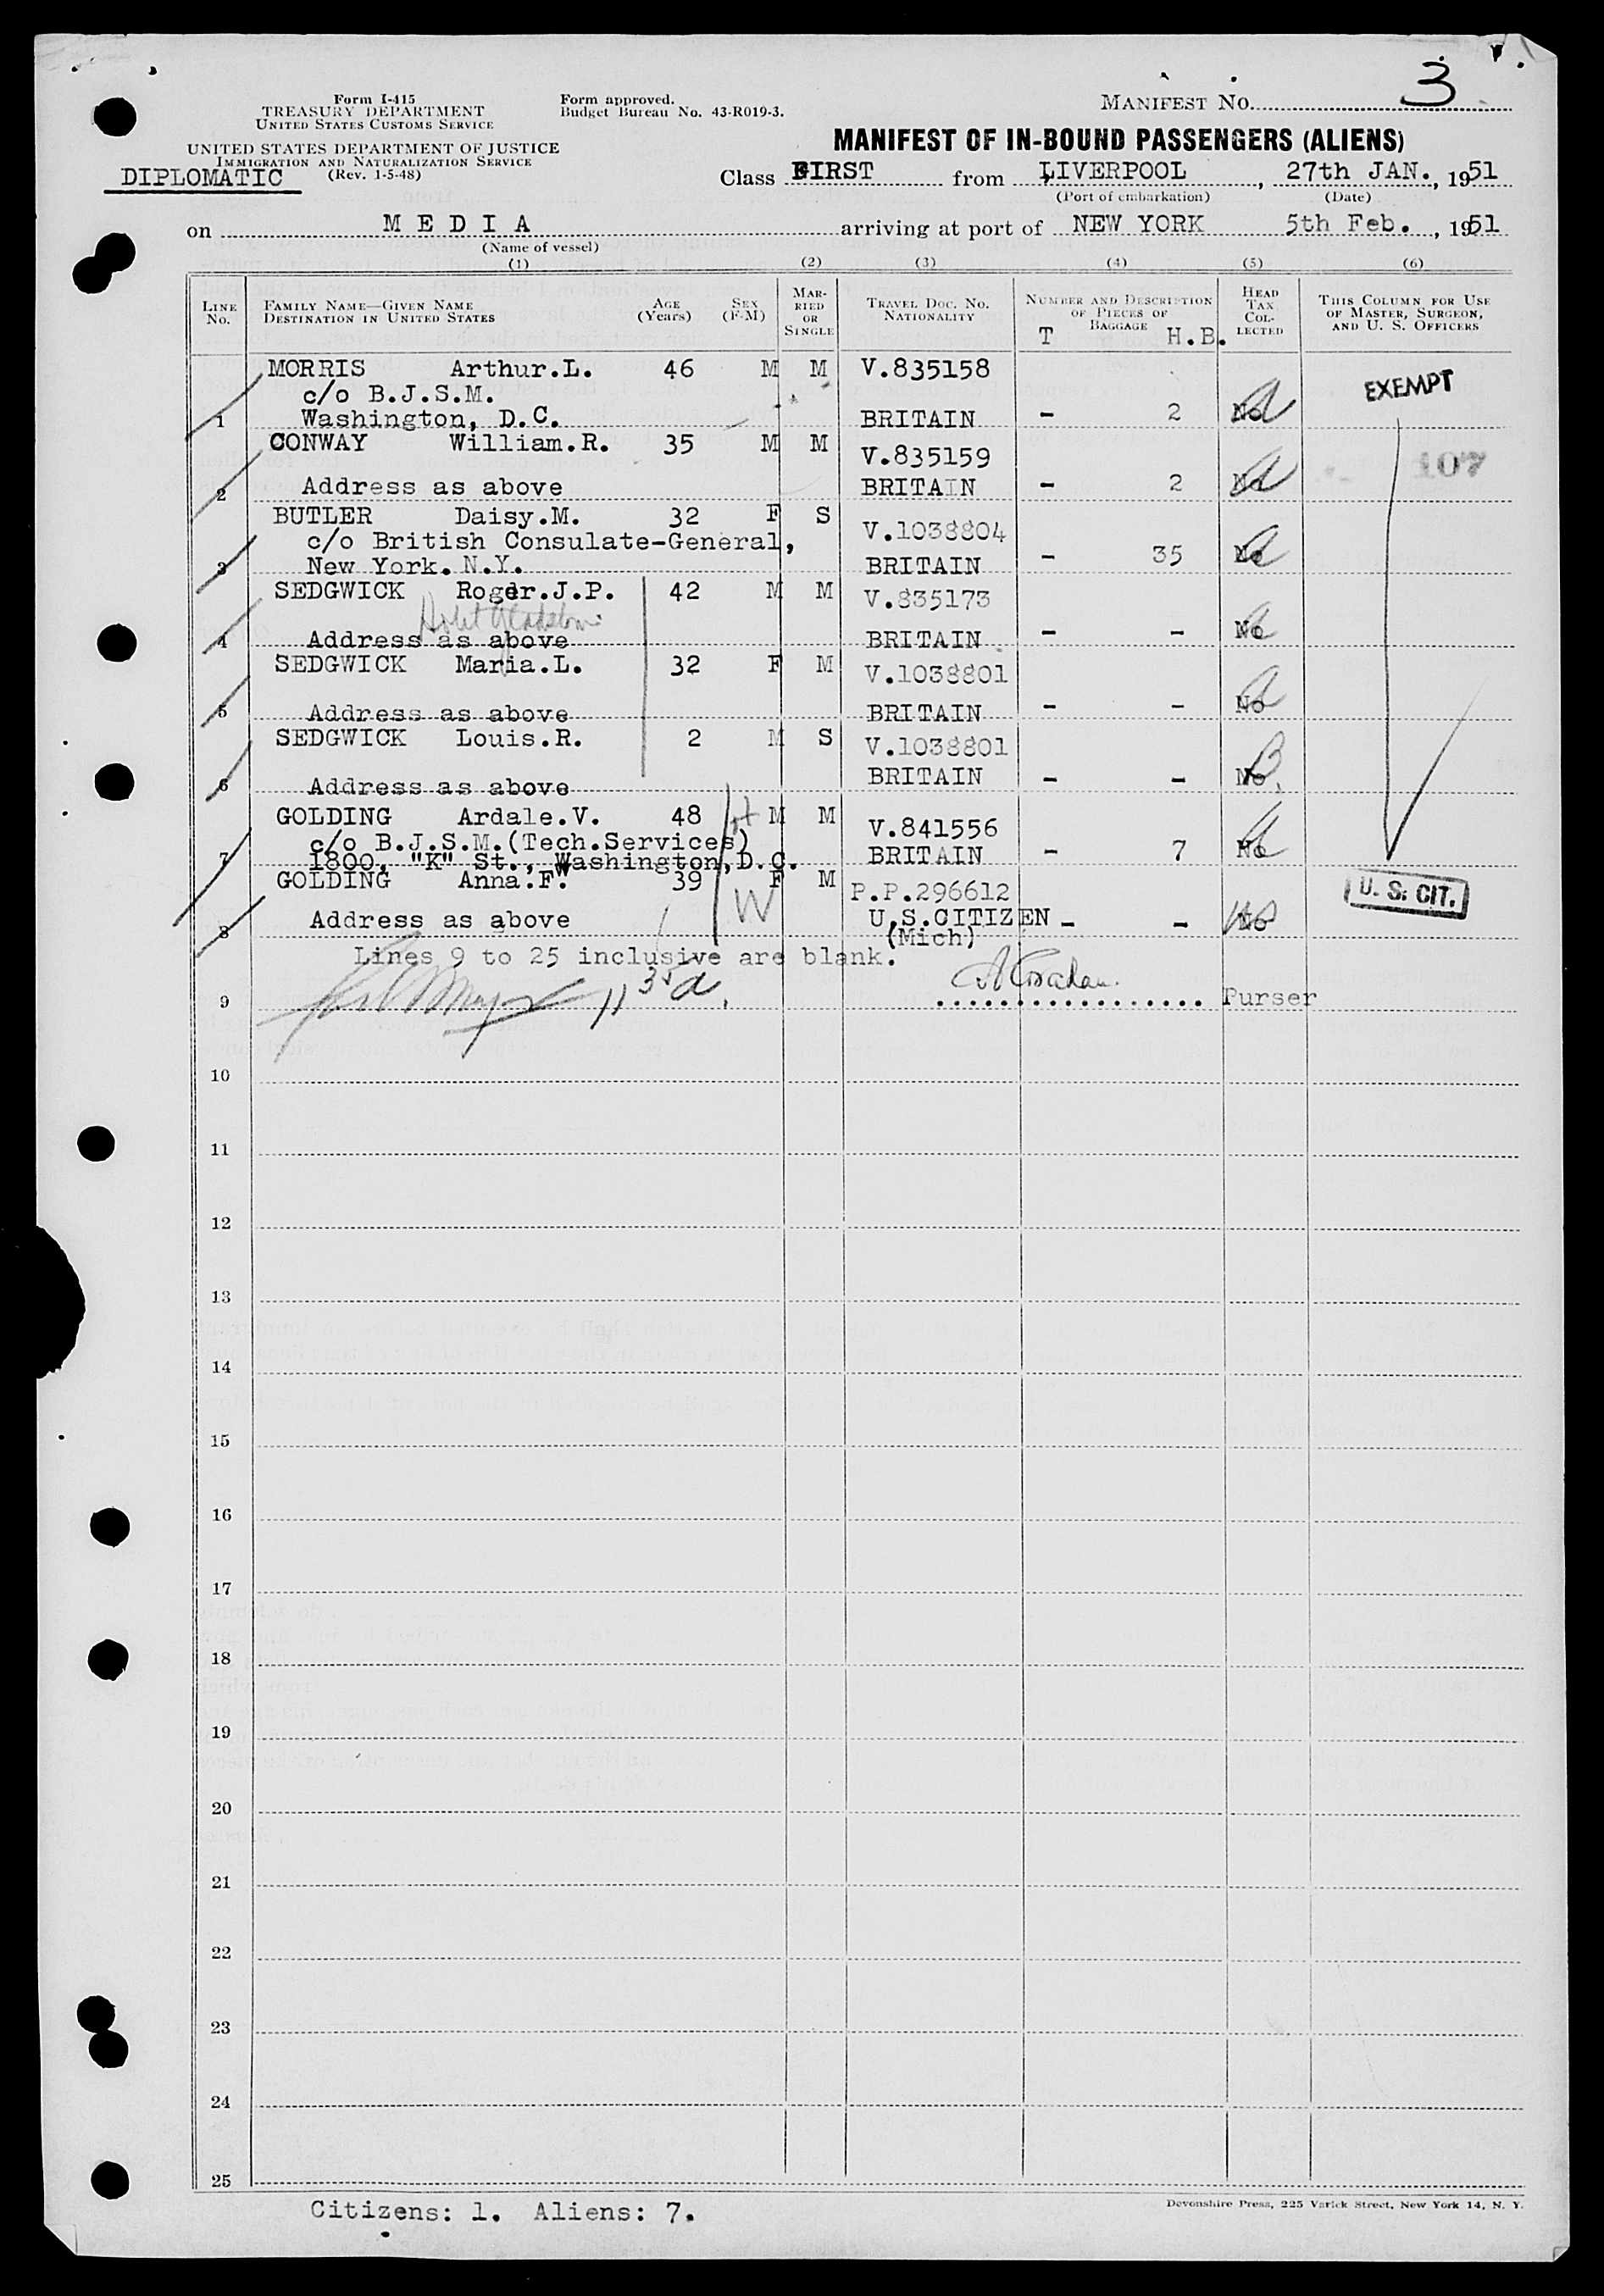 3
Form I-415
TREASURY DEPARTMENT
UNITED STATES CUSTOMS SERVICE
Form approved.
Budget Bureau No. 43-R019-3.
MANIFEST NO.
UNITED STATES DEPARTMENT OF JUSTICE
IMMIGRATION AND NATURALIZATION SERVICE
(Rev. 1-5-48)
DIPLOMATIC
MANIFEST OF IN-BOUND PASSENGERS (ALIENS)
Class FIRST from LIVERPOOL, 27th JAN., 1951
(Port of embarkation) (Date)
on M E D I A arriving at port of NEW YORK 5th Feb., 1951
(Name of vessel)
(1) (2) (3) (4) (5) (6)
LINE NO. FAMILY NAME—GIVEN NAME DESTINATION IN UNITED STATES AGE (Years) SEX (F-M) MARRIED OR SINGLE TRAVEL DOC. NO. NATIONALITY NUMBER AND DESCRIPTION OF PIECES OF BAGGAGE HEAD TAX COLLECTED THIS COLUMN FOR USE OF MASTER, SURGEON, AND U. S. OFFICERS
T H.B.
MORRIS Arthur.L. 46 M M V.835158
c/o B.J.S.M. EXEMPT
1 Washington, D.C. BRITAIN - 2 No
CONWAY William.R. 35 M M V.835159
107
2 Address as above BRITAIN - 2 No
BUTLER Daisy.M. 32 F S V.1038804
c/o British Consulate-General,
3 New York. N.Y. BRITAIN - 35 No
SEDGWICK Roger.J.P. 42 M M V.835173
4 Address as above BRITAIN - - No
SEDGWICK Maria.L. 32 F M V.1038801
5 Address as above BRITAIN - - No
SEDGWICK Louis.R. 2 M S V.1038801
6 Address as above BRITAIN - - No
GOLDING Ardale.V. 48 M M V.841556
c/o B.J.S.M.(Tech.Services)
7 1800, "K" St., Washington,D.C. BRITAIN - 7 No
GOLDING Anna.F. 39 F M P.P.296612 U. S. CIT.
8 Address as above W U.S.CITIZEN - - No
(Mich)
Lines 9 to 25 inclusive are blank.
9 Purser
10
11
12
13
14
15
16
17
18
19
20
21
22
23
24
25
Citizens: 1. Aliens: 7.
Devonshire Press, 225 Varick Street, New York 14, N. Y.